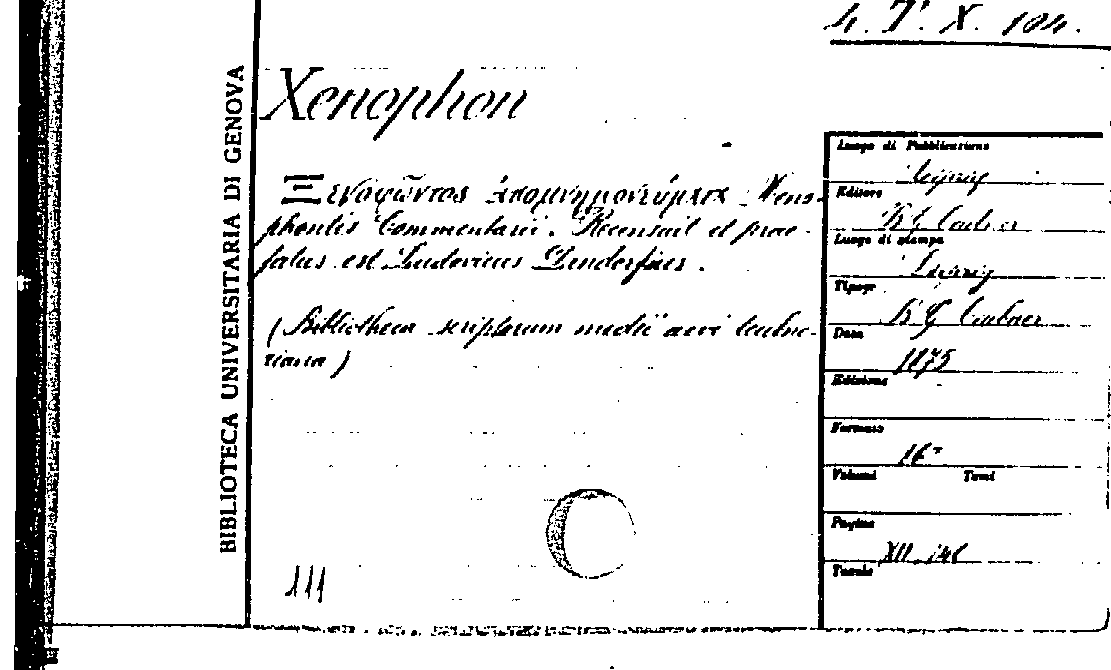 4. T. X. 104.
BIBLIOTECA UNIVERSITARIA DI GENOVA
Xenophon
Ξενοφῶντος ἀπομνημονεύματα Xeno-
phontis Commentarii. Recensuit et prae-
fatus est Ludovicus Dindorfius.
(Bibliotheca scriptorum medii aevi teubne-
riana)
111
Luogo di Pubblicazione
Leipzig
Editore
B G Teubner
Luogo di stampa
Leipzig
Tipogr
B G Teubner
Data
1875
Edizione
Formato
16°
Volumi Tomi
Pagine
XII.
Tavole